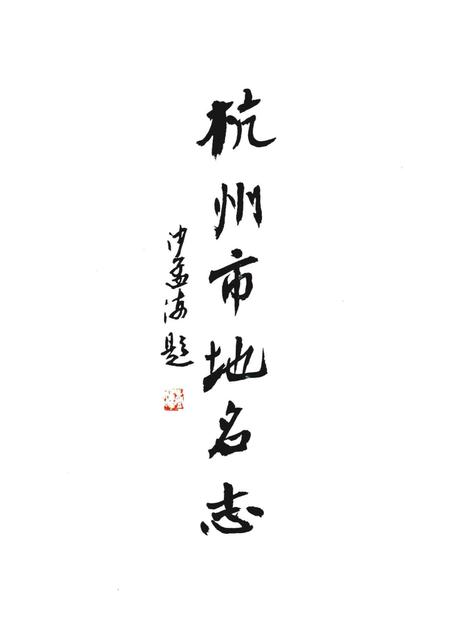 杭州市地名志
沙孟海题